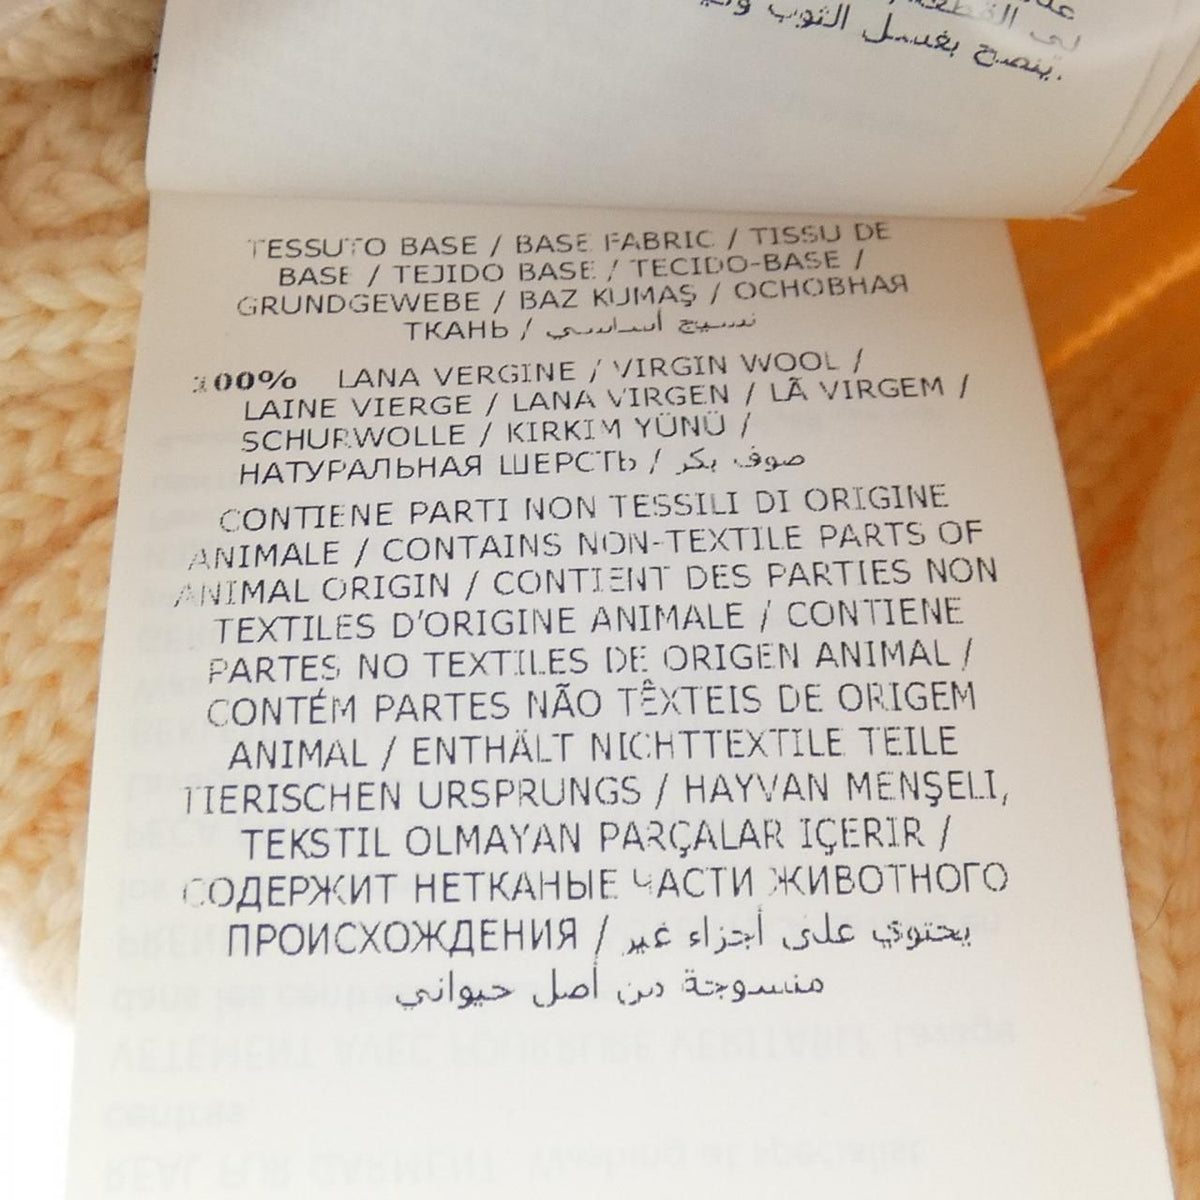 ينصح بغسل الثوب
TESSUTO BASE / BASE FABRIC / TISSU DE
BASE / TEJIDO BASE / TECIDO-BASE /
GRUNDGEWEBE / BAZ KUMAŞ / ОСНОВНАЯ
ТКАНЬ / نسيج أساسي
100% LANA VERGINE / VIRGIN WOOL /
LAINE VIERGE / LANA VIRGEN / LÃ VIRGEM /
SCHURWOLLE / KIRKIM YÜNÜ /
НАТУРАЛЬНАЯ ШЕРСТЬ / صوف بكر
CONTIENE PARTI NON TESSILI DI ORIGINE
ANIMALE / CONTAINS NON-TEXTILE PARTS OF
ANIMAL ORIGIN / CONTIENT DES PARTIES NON
TEXTILES D'ORIGINE ANIMALE / CONTIENE
PARTES NO TEXTILES DE ORIGEN ANIMAL /
CONTÉM PARTES NÃO TÊXTEIS DE ORIGEM
ANIMAL / ENTHÄLT NICHTTEXTILE TEILE
TIERISCHEN URSPRUNGS / HAYVAN MENŞELI,
TEKSTIL OLMAYAN PARÇALAR IÇERIR /
СОДЕРЖИТ НЕТКАНЫЕ ЧАСТИ ЖИВОТНОГО
ПРОИСХОЖДЕНИЯ / يحتوي على أجزاء غير
منسوجة من أصل حيواني